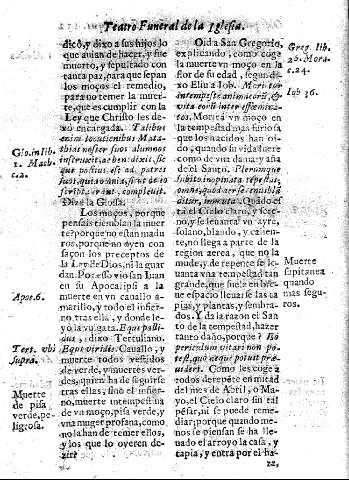 Teatro Funeral de la Iglesia.
dicò, y dixo a sus hijos lo
que auian de hacer, y fue
muerto, y sepultado con
tanta paz, para que sepan
los moços el remedio,
para no temer la muer-
te, que es cumplir con la
Ley que Christo les de-
xò encargada. Talibus
enim locutionibus Mata-
thias noster suos alumnos
instruxit, ac benedixit, sic
que positus est ad patres
suos, quia omnia, sine
Dize la Glossa.
Los moços, porque
pensais tiemblan la muer
te? porque no estan madu
ros, porque no oyen con
façon los preceptos de
la Ley de Dios, ni la guar
dan. Por esso vio san Iuan
en su Apocalipsi a la
muerte en vn cauallo a-
marillo, y todo el infier-
no tras ella, y donde le-
yò la vulgata. Eque palli-
dus, dixo Tertuliano.
Eque viridis. Cauallo, y
muerte todos vestidos
de verde, y muertes ver-
des, quien ha de seguirse
tras ellas, sino el infierno,
muerte intempestiua
de vn moço, pisa verde, y
vna muger profana, como
no la han de temer ellos,
y los que lo oyeren de-
zir?
Gio. in lib.
1. Mach.
c. 2.
Apoc. 6.
Tert. vbi
supra.
Muerte
de pisa
verde, pe-
ligrosa.
Oid a San Gregorio,
explicando, como coga
la muerte vn moço en la
flor de su edad, segun di-
xo Eliu a Iob. Morietur in
tempestate anima eorum, &
vita eorum inter effemina-
tos. Morirà vn moço en
la tempestad mas furiosa
que los nacidos han oido,
quando su vida fuere
como de vna dama y aña
de el Santo. Plerumque
subito inopinata tempestas,
omne, quod aer se tranquilla
dicitur, immutat. Quãdo es
tà el Cielo claro, y sere-
no, y se leuanta vn ayre,
solano, blando, y calien-
te, no llega a parte de la
region aerea, que no la
mude, y de repente se le-
uanta vna tempestad tan
grande, que suele en bre-
ue espacio lleuarse las ta
pias, y plantas, y sembra-
dos. Y da la razon el San
to de la tempestad, hazer
tanto daño, porque? Eo
periculum vitari non po-
test, quò neque potuit præ-
uideri. Como les coge a
todos derepẽte en mitad
del mes de Abril, o Ma-
yo, el Cielo claro sin tal
pẽsar, ni se puede reme-
diar, porque quando me-
nos se piensa se ha lle-
uado el arroyo la casa, y
tapia, y entra por el ha-
za,
Greg. lib.
25. Mora.
c. 24.
Iob 36.
Muerte
supitanea
quando
mas segu-
ros.